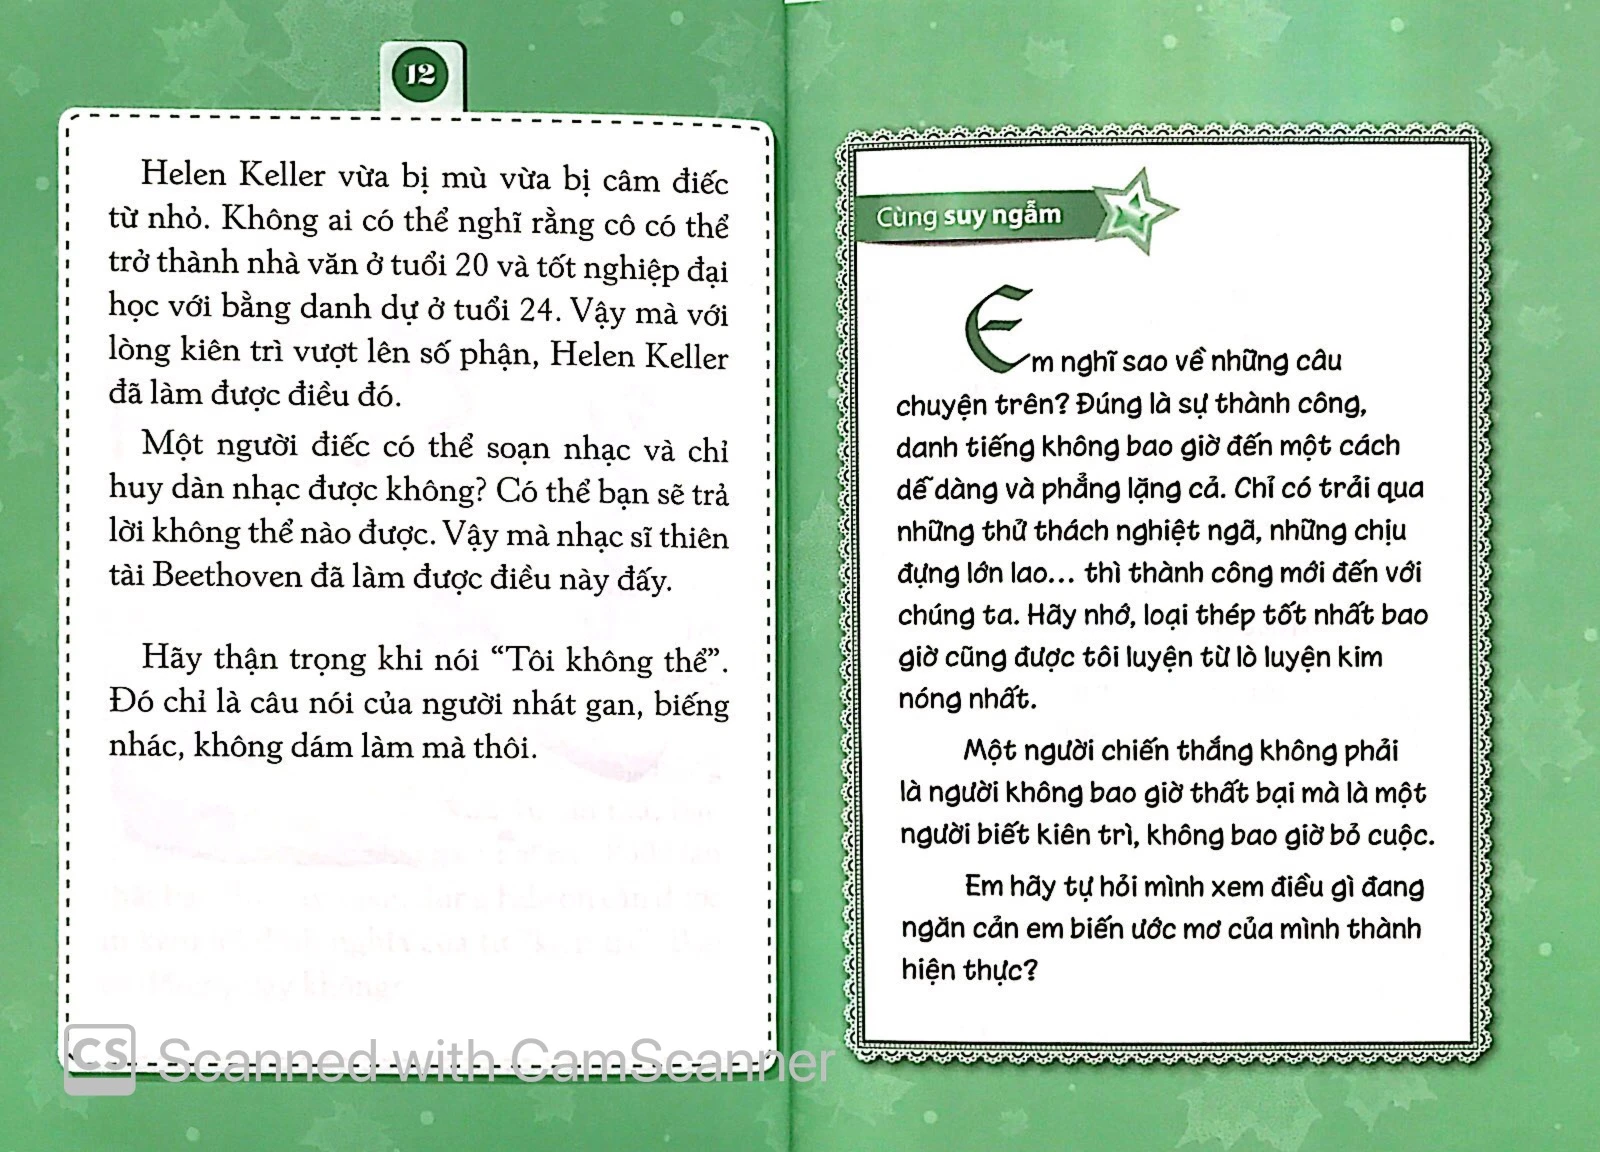 12
Helen Keller vừa bị mù vừa bị câm điếc
từ nhỏ. Không ai có thể nghĩ rằng cô có thể
trở thành nhà văn ở tuổi 20 và tốt nghiệp đại
học với bằng danh dự ở tuổi 24. Vậy mà với
lòng kiên trì vượt lên số phận, Helen Keller
đã làm được điều đó.
Một người điếc có thể soạn nhạc và chỉ
huy dàn nhạc được không? Có thể bạn sẽ trả
lời không thể nào được. Vậy mà nhạc sĩ thiên
tài Beethoven đã làm được điều này đấy.
Hãy thận trọng khi nói “Tôi không thể”.
Đó chỉ là câu nói của người nhát gan, biếng
nhác, không dám làm mà thôi.
Cùng suy ngẫm
Em nghĩ sao về những câu
chuyện trên? Đúng là sự thành công,
danh tiếng không bao giờ đến một cách
dễ dàng và phẳng lặng cả. Chỉ có trải qua
những thử thách nghiệt ngã, những chịu
đựng lớn lao... thì thành công mới đến với
chúng ta. Hãy nhớ, loại thép tốt nhất bao
giờ cũng được tôi luyện từ lò luyện kim
nóng nhất.
Một người chiến thắng không phải
là người không bao giờ thất bại mà là một
người biết kiên trì, không bao giờ bỏ cuộc.
Em hãy tự hỏi mình xem điều gì đang
ngăn cản em biến ước mơ của mình thành
hiện thực?
CS Scanned with CamScanner